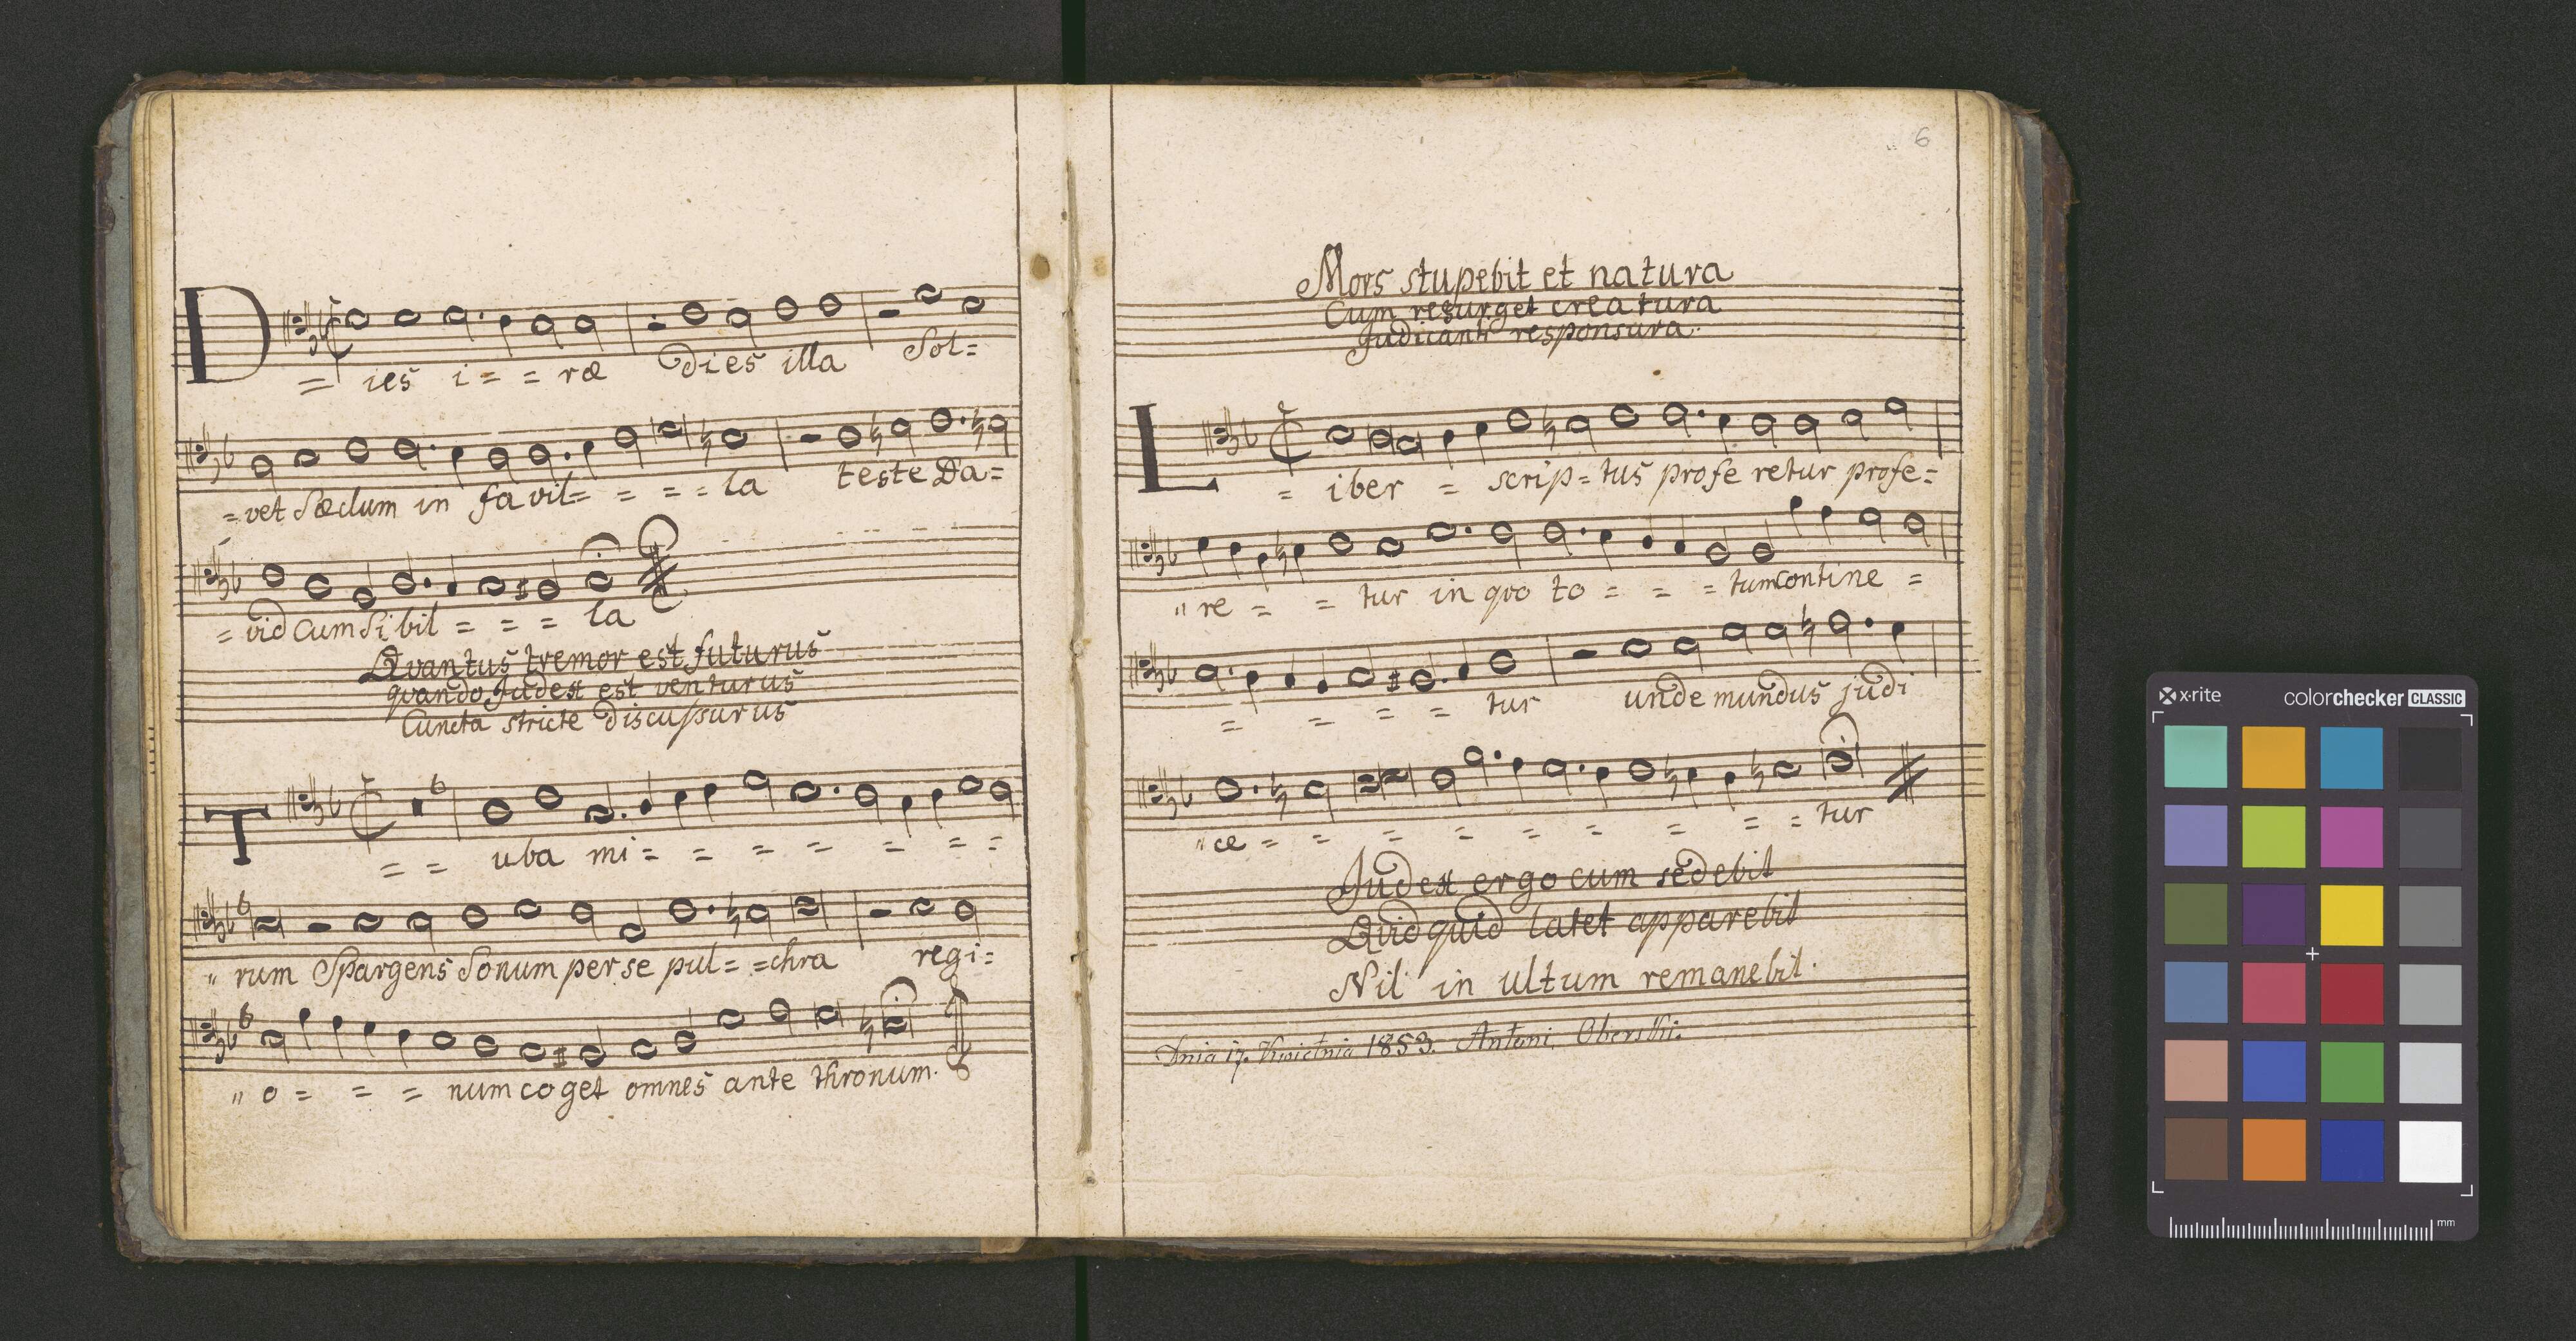 D = ies i = = ræ dies illa Sol=
= vet Sæclum in favil= = = = la teste Da=
= vid Cum Si bil = = = la
Qvantus tremor est futurus
qvando Judex est venturus
Cuncta stricte discussurus
T = = uba mi = = = = = = =
" rum Spargens Sonum per se pul= =chra regi=
" o = = = num coget omnes ante thronum.
6
Mors stupebit et natura
Cum resurget creatura
Judicanti responsura.
L = iber = scrip = tus profe retur profe=
" re = = tur in qvo to = = = tum contine =
= = = = tur unde mundus judi
" ce = = = = = = = = = tur
Judex ergo cum sedebit
Qvidquid latet apparebit
Nil in ultum remanebit.
Dnia 17. Kwietnia 1853. Antoni Oberski.
x·rite colorchecker CLASSIC
mm